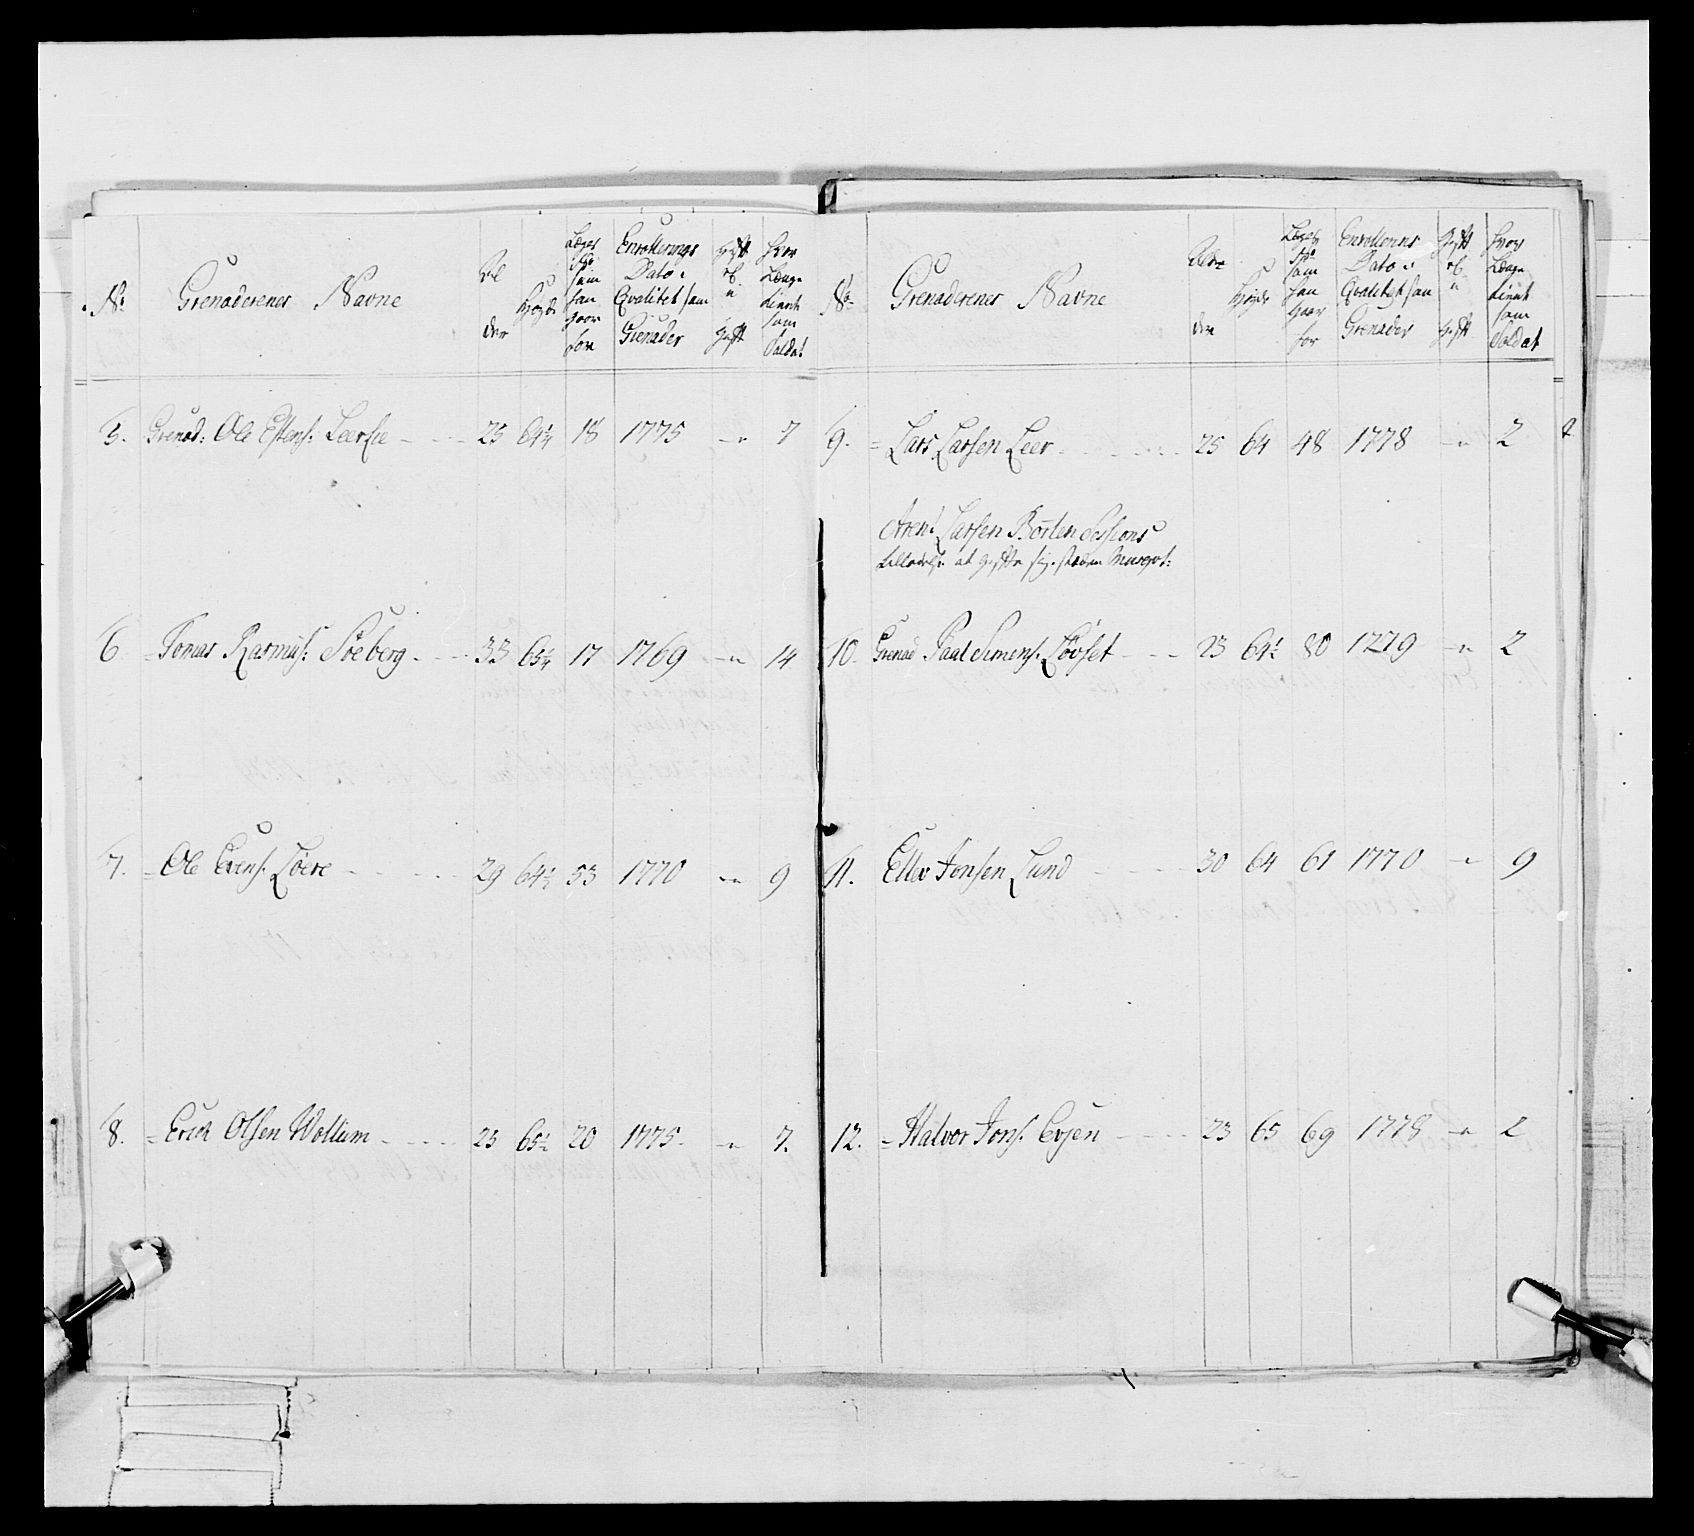 No
Grenaderenes Navne
Al
der
Høyde
Læges
No
som
han
gaar
for
Enrollerings
Dato i
Qvalitet som
Grenader
gift
el.
u
gift
hvor
Længe
tiennt
som
Soldat
5. Grenad: Ole Estens: Leersie 25 64¼ 18 1775 - u 7
6 - Tomas Rasmus: Søeberg 33 65¼ 17 1769 - u 14
7. - Ole Evens: Løere 29 64½ 53 1770 - u 9
8. - Erich Olsen Wollum 23 65½ 20 1775 - u 7.
No
Grenaderenes Navne
Alde
der
Høyde
Læges
No
som
han
gaar
for
Enrollerins
Dato i
Qvalitet som
Grenader
Gift
el.
u
gift
hvor
Længe
tiennt
som
Soldat
9. - Lars Larsen Leer 25 64 48 1778 - u 2
Arent Larsen Borten Sessions
tilladelse at gifte sig,
10. Grenad Paal Simens: Løvset 23 64½ 80 1779 - u 2
11. Ellev Jonsen Lund 30 64 61 1770 - u 9
12. - Halvor Jons: Evjen 23 65 69 1778 - u 2